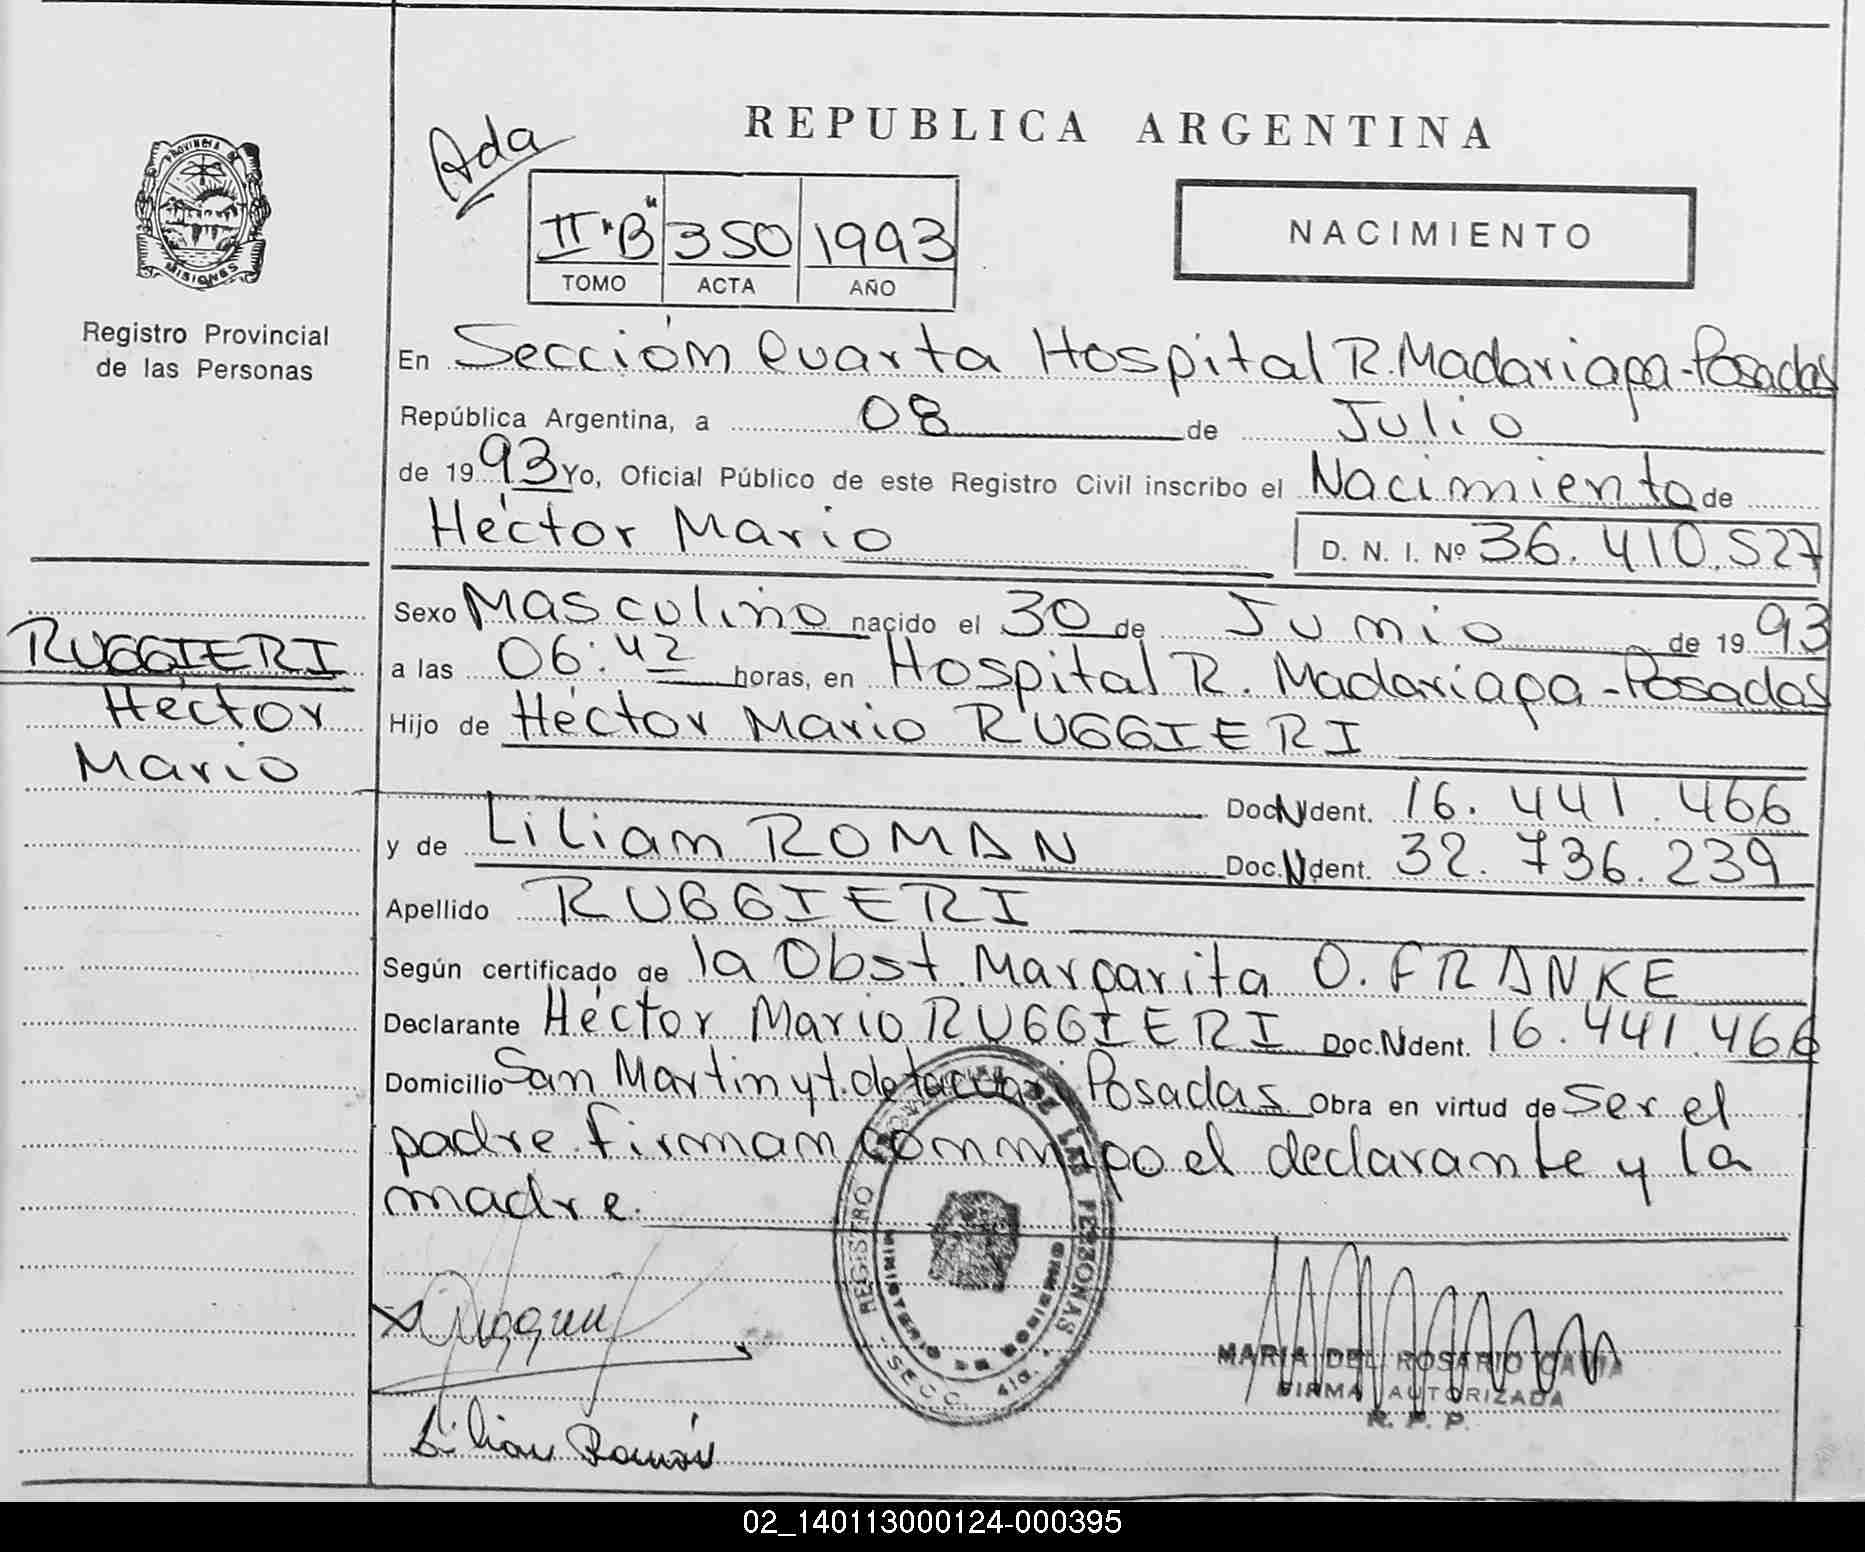 Ada
REPUBLICA ARGENTINA
PROVINCIA DE
MISIONES
Registro Provincial
de las Personas
II "B" 350 1993
TOMO ACTA AÑO
NACIMIENTO
En Sección Cuarta Hospital R. Madariaga-Posadas
República Argentina, a 08 de Julio
de 1993 Yo, Oficial Público de este Registro Civil inscribo el Nacimiento de
Héctor Mario
D. N. I. Nº 36.410.527
Sexo Masculino nacido el 30 de Junio de 1993
a las 06:42 horas, en Hospital R. Madariaga-Posadas
Hijo de Héctor Mario RUGGIERI
RUGGIERI
Héctor
Mario
Doc.N Ident. 16.441.466
y de Lilian ROMAN Doc.N Ident. 32.736.239
Apellido RUGGIERI
Según certificado de la Obst. Margarita O. FRANKE
Declarante Héctor Mario RUGGIERI Doc.N Ident. 16.441.466
Domicilio San Martin y t. de Posadas Obra en virtud de ser el
padre. firman conmigo el declarante y la
madre.
REGISTRO PROVINCIAL DE LAS PERSONAS
MINISTERIO DE GOBIERNO
SECC. 4ta.
MARIA DEL ROSARIO
FIRMA AUTORIZADA
R. P. P.
Lilian Román
02_140113000124-000395